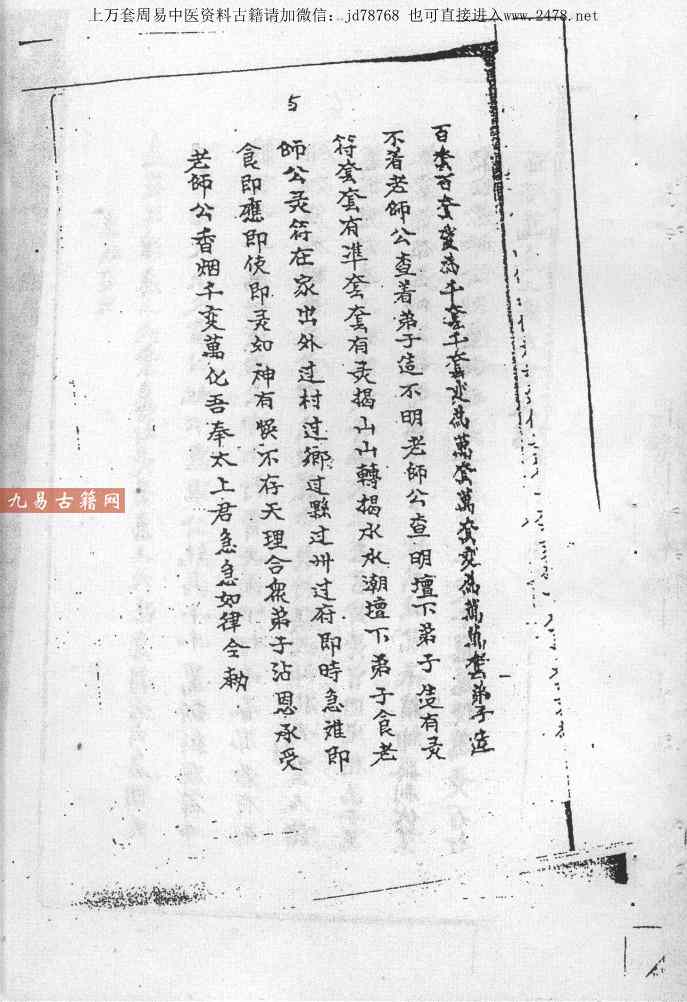 上万套周易中医资料古籍请加微信：jd78768 也可直接进入www.2478.net
5
百套百套變為千套千套变為萬套萬套变為萬萬套弟子造
不着老師公查着弟子造不明老師公查明壇下弟子造有灵
符套套有準套套有灵揭山山轉揭水水潮壇下弟子食老
師公灵符在家出外过村过鄉过縣过州过府即時急难即
食即應即使即灵如神有悮不存天理合衆弟子沾恩承受
老師公香烟千变萬化吾奉太上君急急如律令勅
九易古籍网